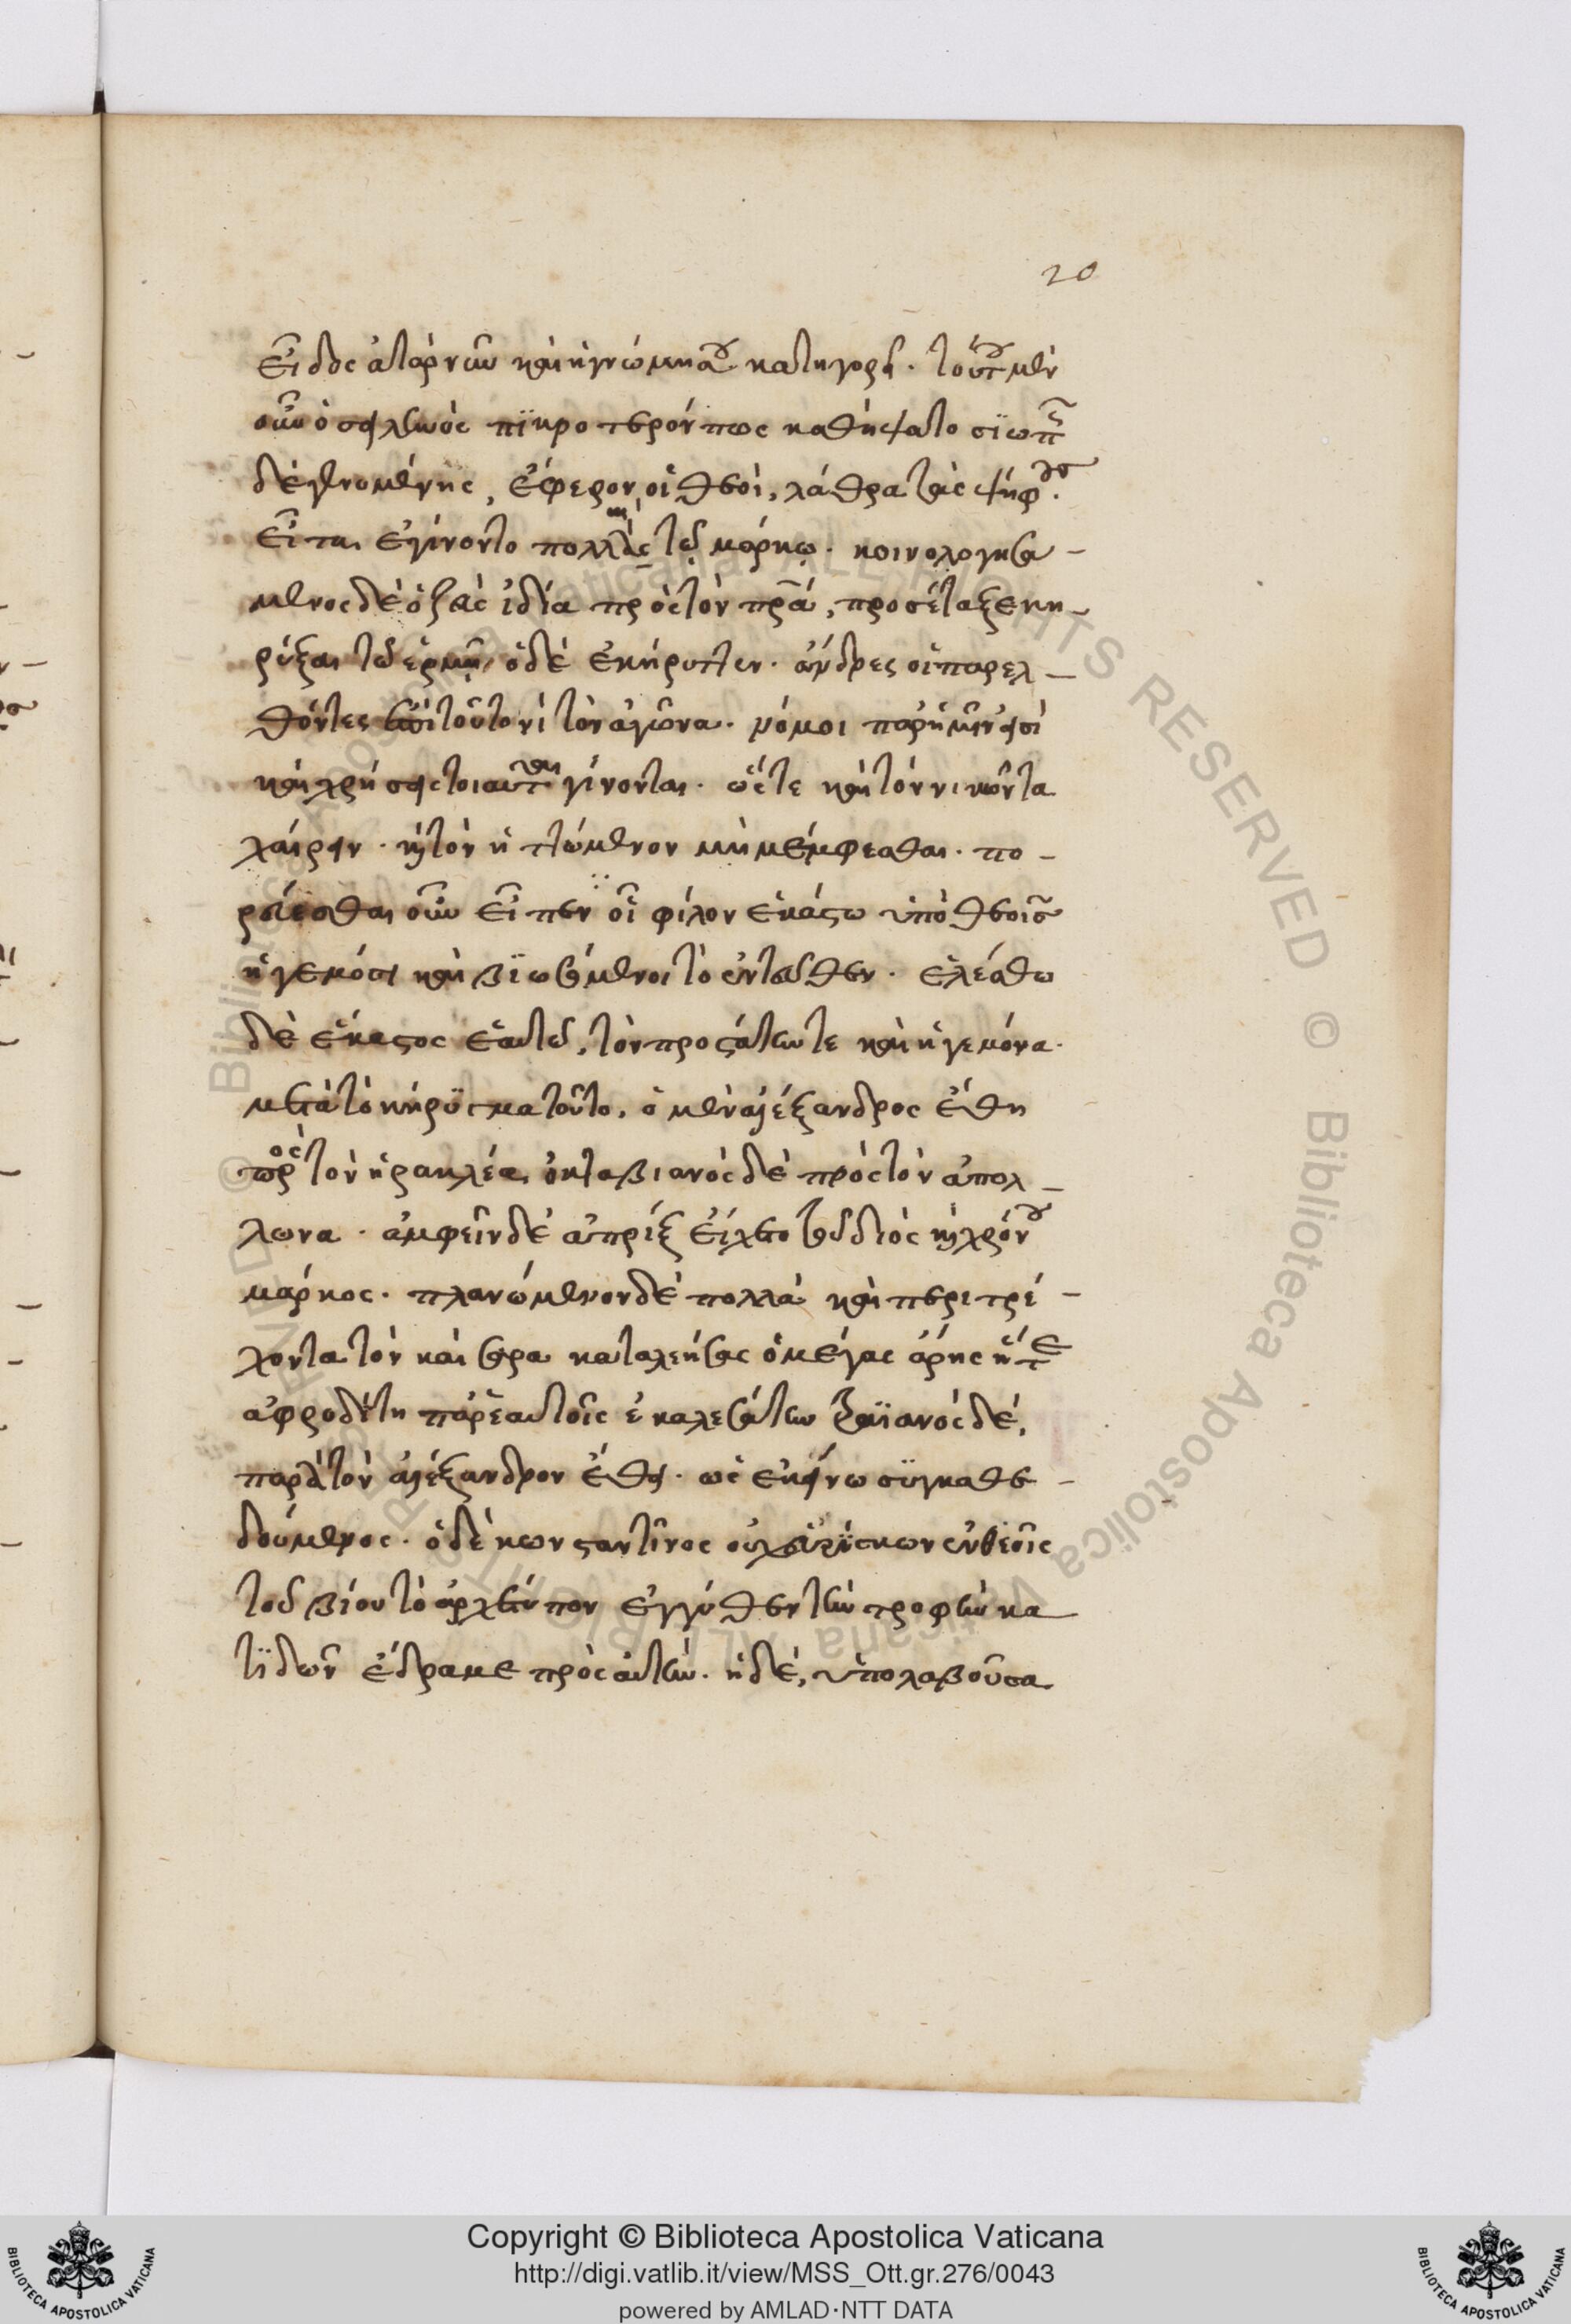 20
εἶδος ἀταρνῶν καὶ ἡ γνώμη αὐτοῦ κατηγορεῖ. τούτου μὲν
οὖν ὁ σειληνὸς πϊκρότερόν πως καθήψατο σϊωπῆς
δὲ γενομένης, ἔφερον οἱ θεοὶ, λάθρα τὰς ψήφους.
εἶται ἐγίνοντο πολλαὶ τῷ μάρκῳ. κοινολογησά-
μενος δὲ ὁ ζεὺς ἰδία πρὸς τὸν πρα, προσέταξε κη-
ρύξαι τῷ ἑρμῇ, ὁ δὲ ἐκήρυττεν. ἄνδρες οἱ παρελ-
θόντες ἐπὶ τουτονὶ τὸν ἀγῶνα. νόμοι παρ' ἡμῖν εἰσὶ
καὶ κρίσεις τοιαῦται γίνονται. ὥστε καὶ τὸν νικῶντα
χαίρειν. καὶ τὸν ἡττώμενον μὴ μέμφεσθαι. πο-
ρεύεσθαι οὖν εἶπεν οἷ φίλον ἑκάστω ὑπὸ θεοῖς
ἡγεμόσι καὶ βϊωσόμενοι τὸ ἐντεῦθεν. ἑλέσθω
δὲ ἕκαστος ἑαυτῷ, τὸν προστάτην τε καὶ ἡγεμόνα.
μετὰ τὸ κήρϋγμα τοῦτο, ὁ μὲν ἀλέξανδρος ἔθη
πρὸς τὸν ἡρακλέα, ὀκταβιανὸς δὲ πρὸς τὸν ἀπόλ-
λωνα. ἀμφεῖν δὲ ἀπρὶξ εἴχετο τοῦ διὸς καὶ κρόνου
μάρκος. πλανώμενον δὲ πολλὰ καὶ περιτρέ-
χοντα τὸν καίσαρα κατελεήσας ὁ μέγας ἄρης ἥ τε
ἀφροδίτη παρ' ἑαυτοῖς ἐκαλεσάτην τραϊανὸς δέ,
παρὰ τὸν ἀλέξανδρον ἔθει. ὡς ἐκείνω σϋγκαθε-
δούμενος. ὁ δὲ κωνσταντῖνος οὐχ εὑρίσκων ἐν θεοῖς
τοῦ βίου τὸ ἀρχέτυπον ἐγγύθεν τὴν τρυφὴν κα
τϊδὼν ἔδραμε πρὸς αὐτήν. ἡ δέ, ὑπολαβοῦσα
Copyright © Biblioteca Apostolica Vaticana
http://digi.vatlib.it/view/MSS_Ott.gr.276/0043
powered by AMLAD·NTT DATA